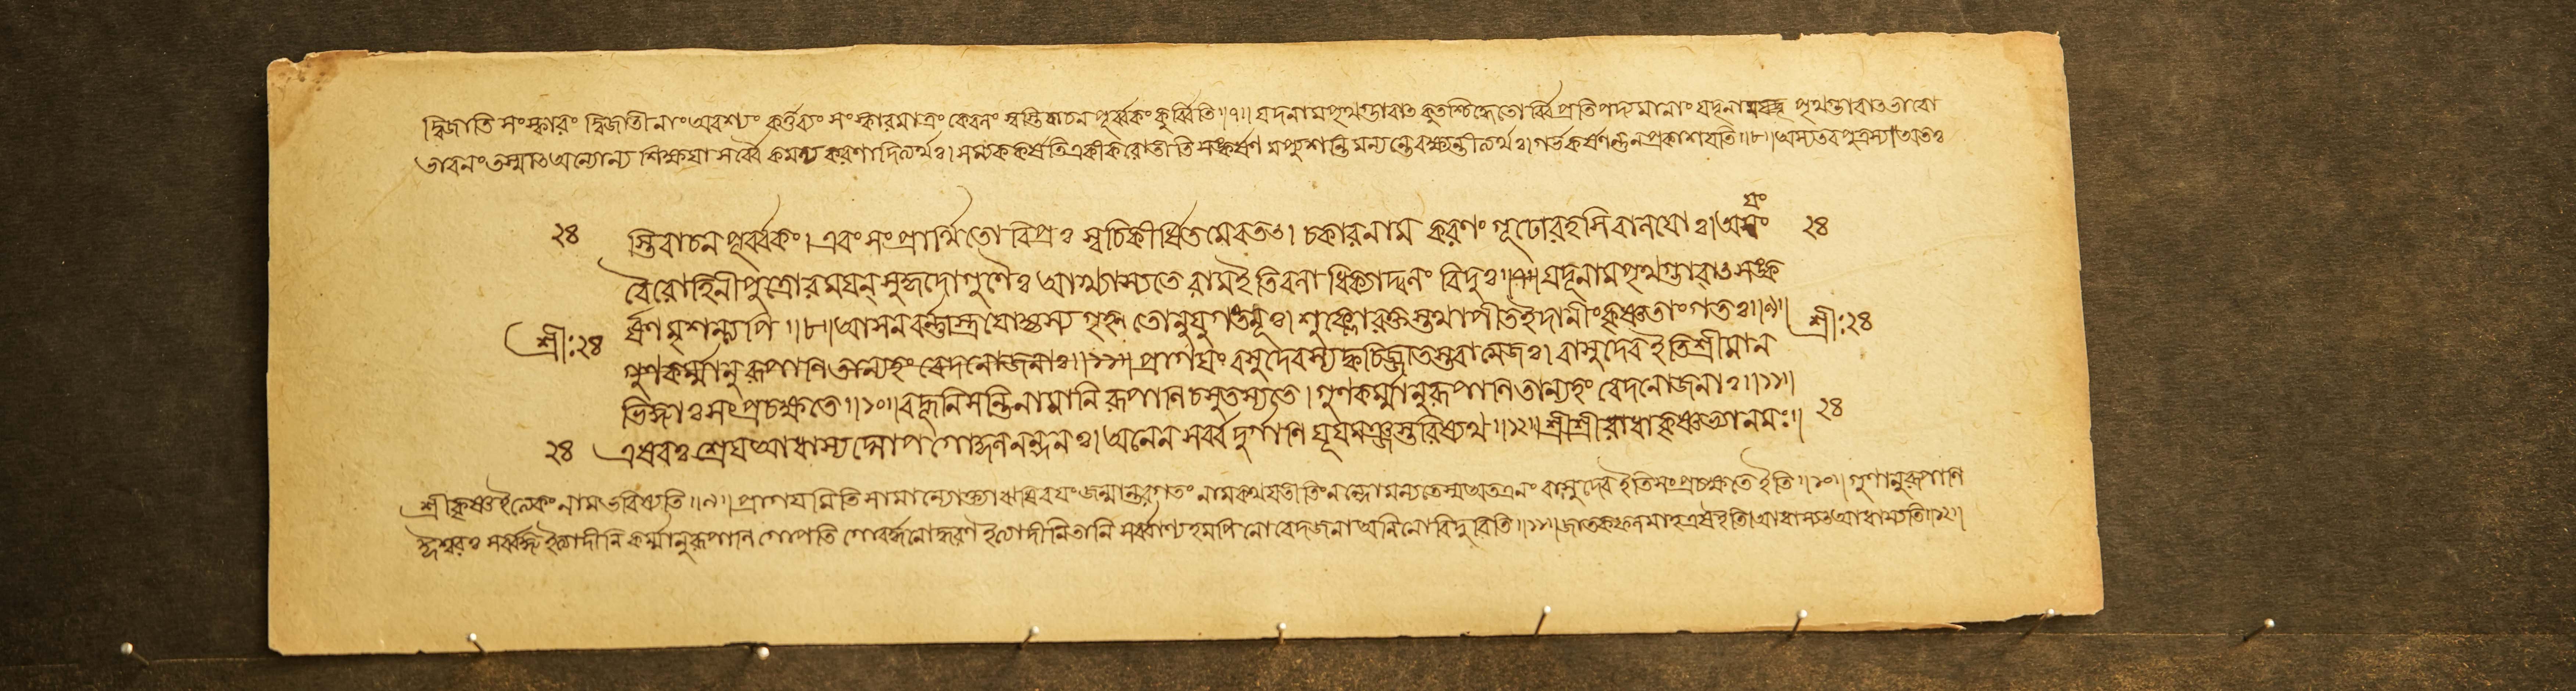 দ্বিজাতি সংস্কারং দ্বিজাতীনাং অবশ্যং কর্ত্তব্যং সংস্কারমাত্রং কেবলং স্বস্তিবাচন পূর্ব্বকং কুর্ব্বিতি ॥৭॥ যদূনামপৃথগ্ভাবাৎ কুতশ্চিদ্ধেতো প্রতিপদ্যমানাং যদূনাং পৃথগ্ভাবাৎ ভাবো
ভাবনং তস্মাৎ অন্যোন্য শিক্ষয়া সর্ব্বৈকমত্য করণাদিত্যর্থঃ। সম্যক কর্ষতি একীকরোতীতি সঙ্কর্ষণ মপ্যুশন্তি মন্যন্তে বক্ষ্যন্তীত্যর্থঃ। গর্ভকর্ষণন্তু ন প্রকাশয়তি ॥৮॥ অস্য তব পুত্রস্য। অতঃ
২৪ স্তিবাচন পূর্ব্বকং। এবং সংপ্রার্থিতো বিপ্রঃ স্বচিকীর্ষিতমেবতৎ। চকার নাম করণং গূঢোরহসি বালযোঃ। অযং ২৪
বৈরোহিনীপুত্রোরময়ন্ সুহৃদোগুণৈঃ আখ্যাস্যতে রাম ইতি বলাধিক্যাদ্বলং বিদুঃ ॥৭॥ যদূনামপৃথগ্ভাবাৎ সঙ্ক
র্ষণ মুশন্ত্যপি ॥৮॥ আসন বর্ন্নাস্ত্রয়োহ্যস্য গৃহ্ন তোনুযুগন্তনূঃ। শুক্লোরক্তস্তথাপীতইদানীং কৃষ্ণতাং গতঃ ॥৯॥
শ্রী:২৪ গুণকর্ম্মানুরূপাণি তান্যহং বেদনোজনাঃ ॥১১॥ প্রাগয়ং বসুদেবস্য ক্বচিজ্জাতস্তবাত্মজঃ। বাসুদেব ইতি শ্রীমান শ্রী:২৪
ভিজ্ঞাঃ সংপ্রচক্ষতে ॥১০॥ বহূনি সন্তি নামানি রূপানি চ সুতস্যতে। গুণকর্ম্মানুরূপাণি তান্যহং বেদনোজনাঃ ॥১১॥
২৪ এষ বঃ শ্রেয় আধাস্যদ্গোপ গোকুলনন্দনঃ। অনেন সর্ব্ব দুর্গাণি যূয়মঞ্জস্তরিষ্যথ ॥১২॥ শ্রীশ্রীরাধাকৃষ্ণভ্যানমঃ॥ ২৪
শ্রীকৃষ্ণ ইত্যেকং নাম ভবিষ্যতি ॥৯॥ প্রাগয়মিতি সামান্যোক্ত্যা জন্মান্তরগতং নাম কথয়তীতি নন্দো মন্যতেস্ম অত এনং বাসুদেব ইতি সংপ্রচক্ষতে ইতি ॥১০॥ গুণানুরূপাণি
ঈশ্বরঃ সর্ব্বজ্ঞ ইত্যাদীনি কর্ম্মানুরূপানি গোপতি গোবর্দ্ধনোদ্ধরণ ইত্যাদীনি তানি সর্ব্বাণ্যহমপি নো বেদ জনা অপি নো বিদুরিতি ॥১১॥ জাতকফলমাহ এষ ইতি। আধাস্যৎ আধাস্যতি ॥১২॥